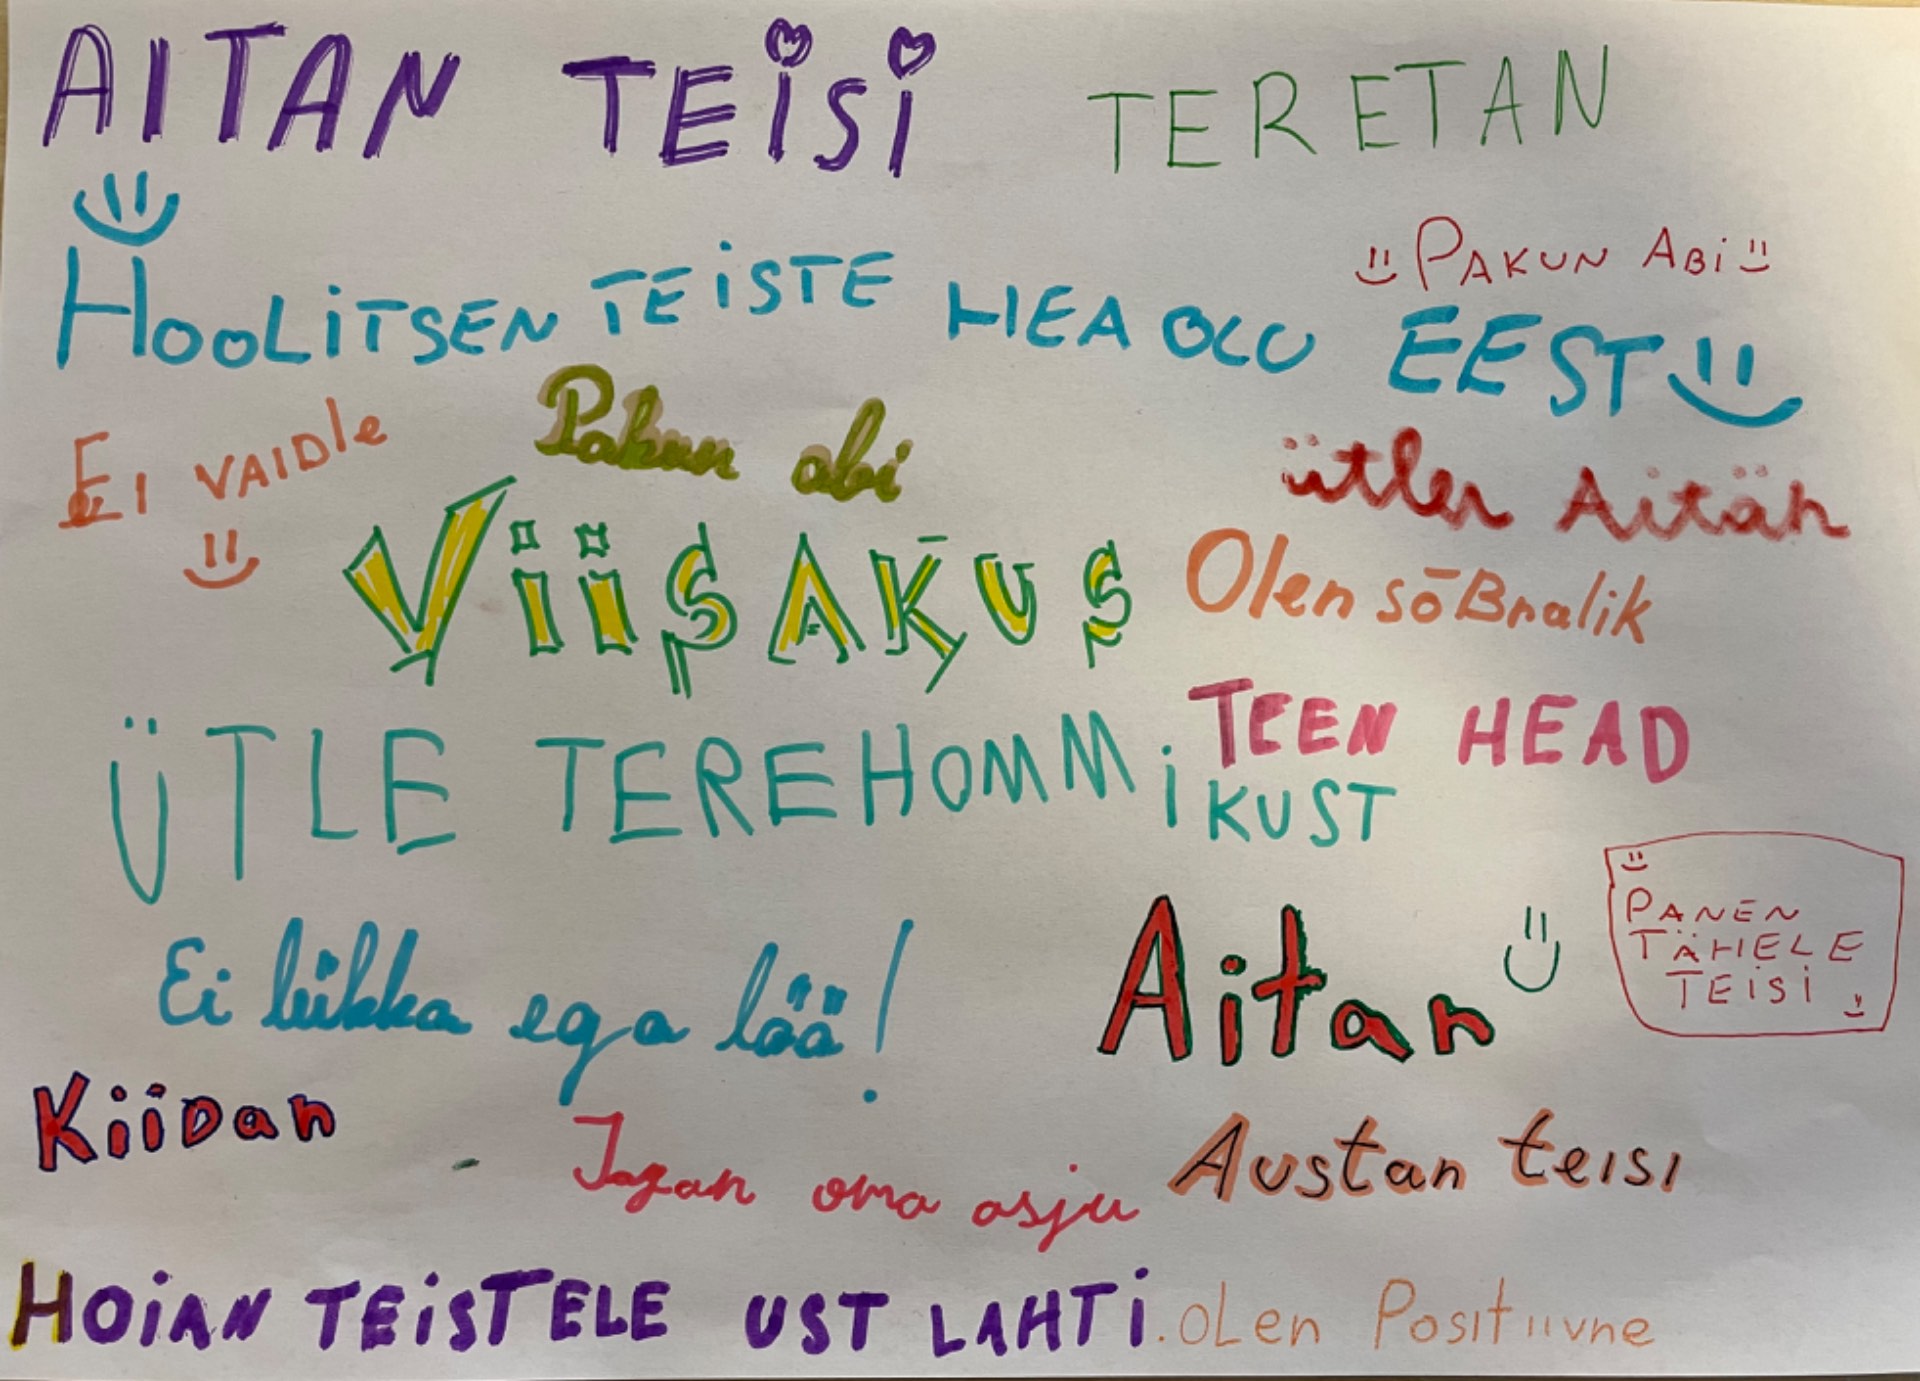 AITAN TEiSi
TERETAN
PAKUN ABi
HOOLiTSEN TEiSTE HEAOLU EEST
Ei VAIDle
Pakun abi
ütlen Aitäh
ViiSAKUS
Olen sõBralik
TEEN HEAD
ÜTLE TEREHOMMiKUST
Aitan
PANEN
TÄHELE
TEiSi
Ei lükka ega löö!
KiiDan
Jagan oma asju
Austan teisi
HOiAN TEiSTELE UST LAHTi.
oLen Positiivne